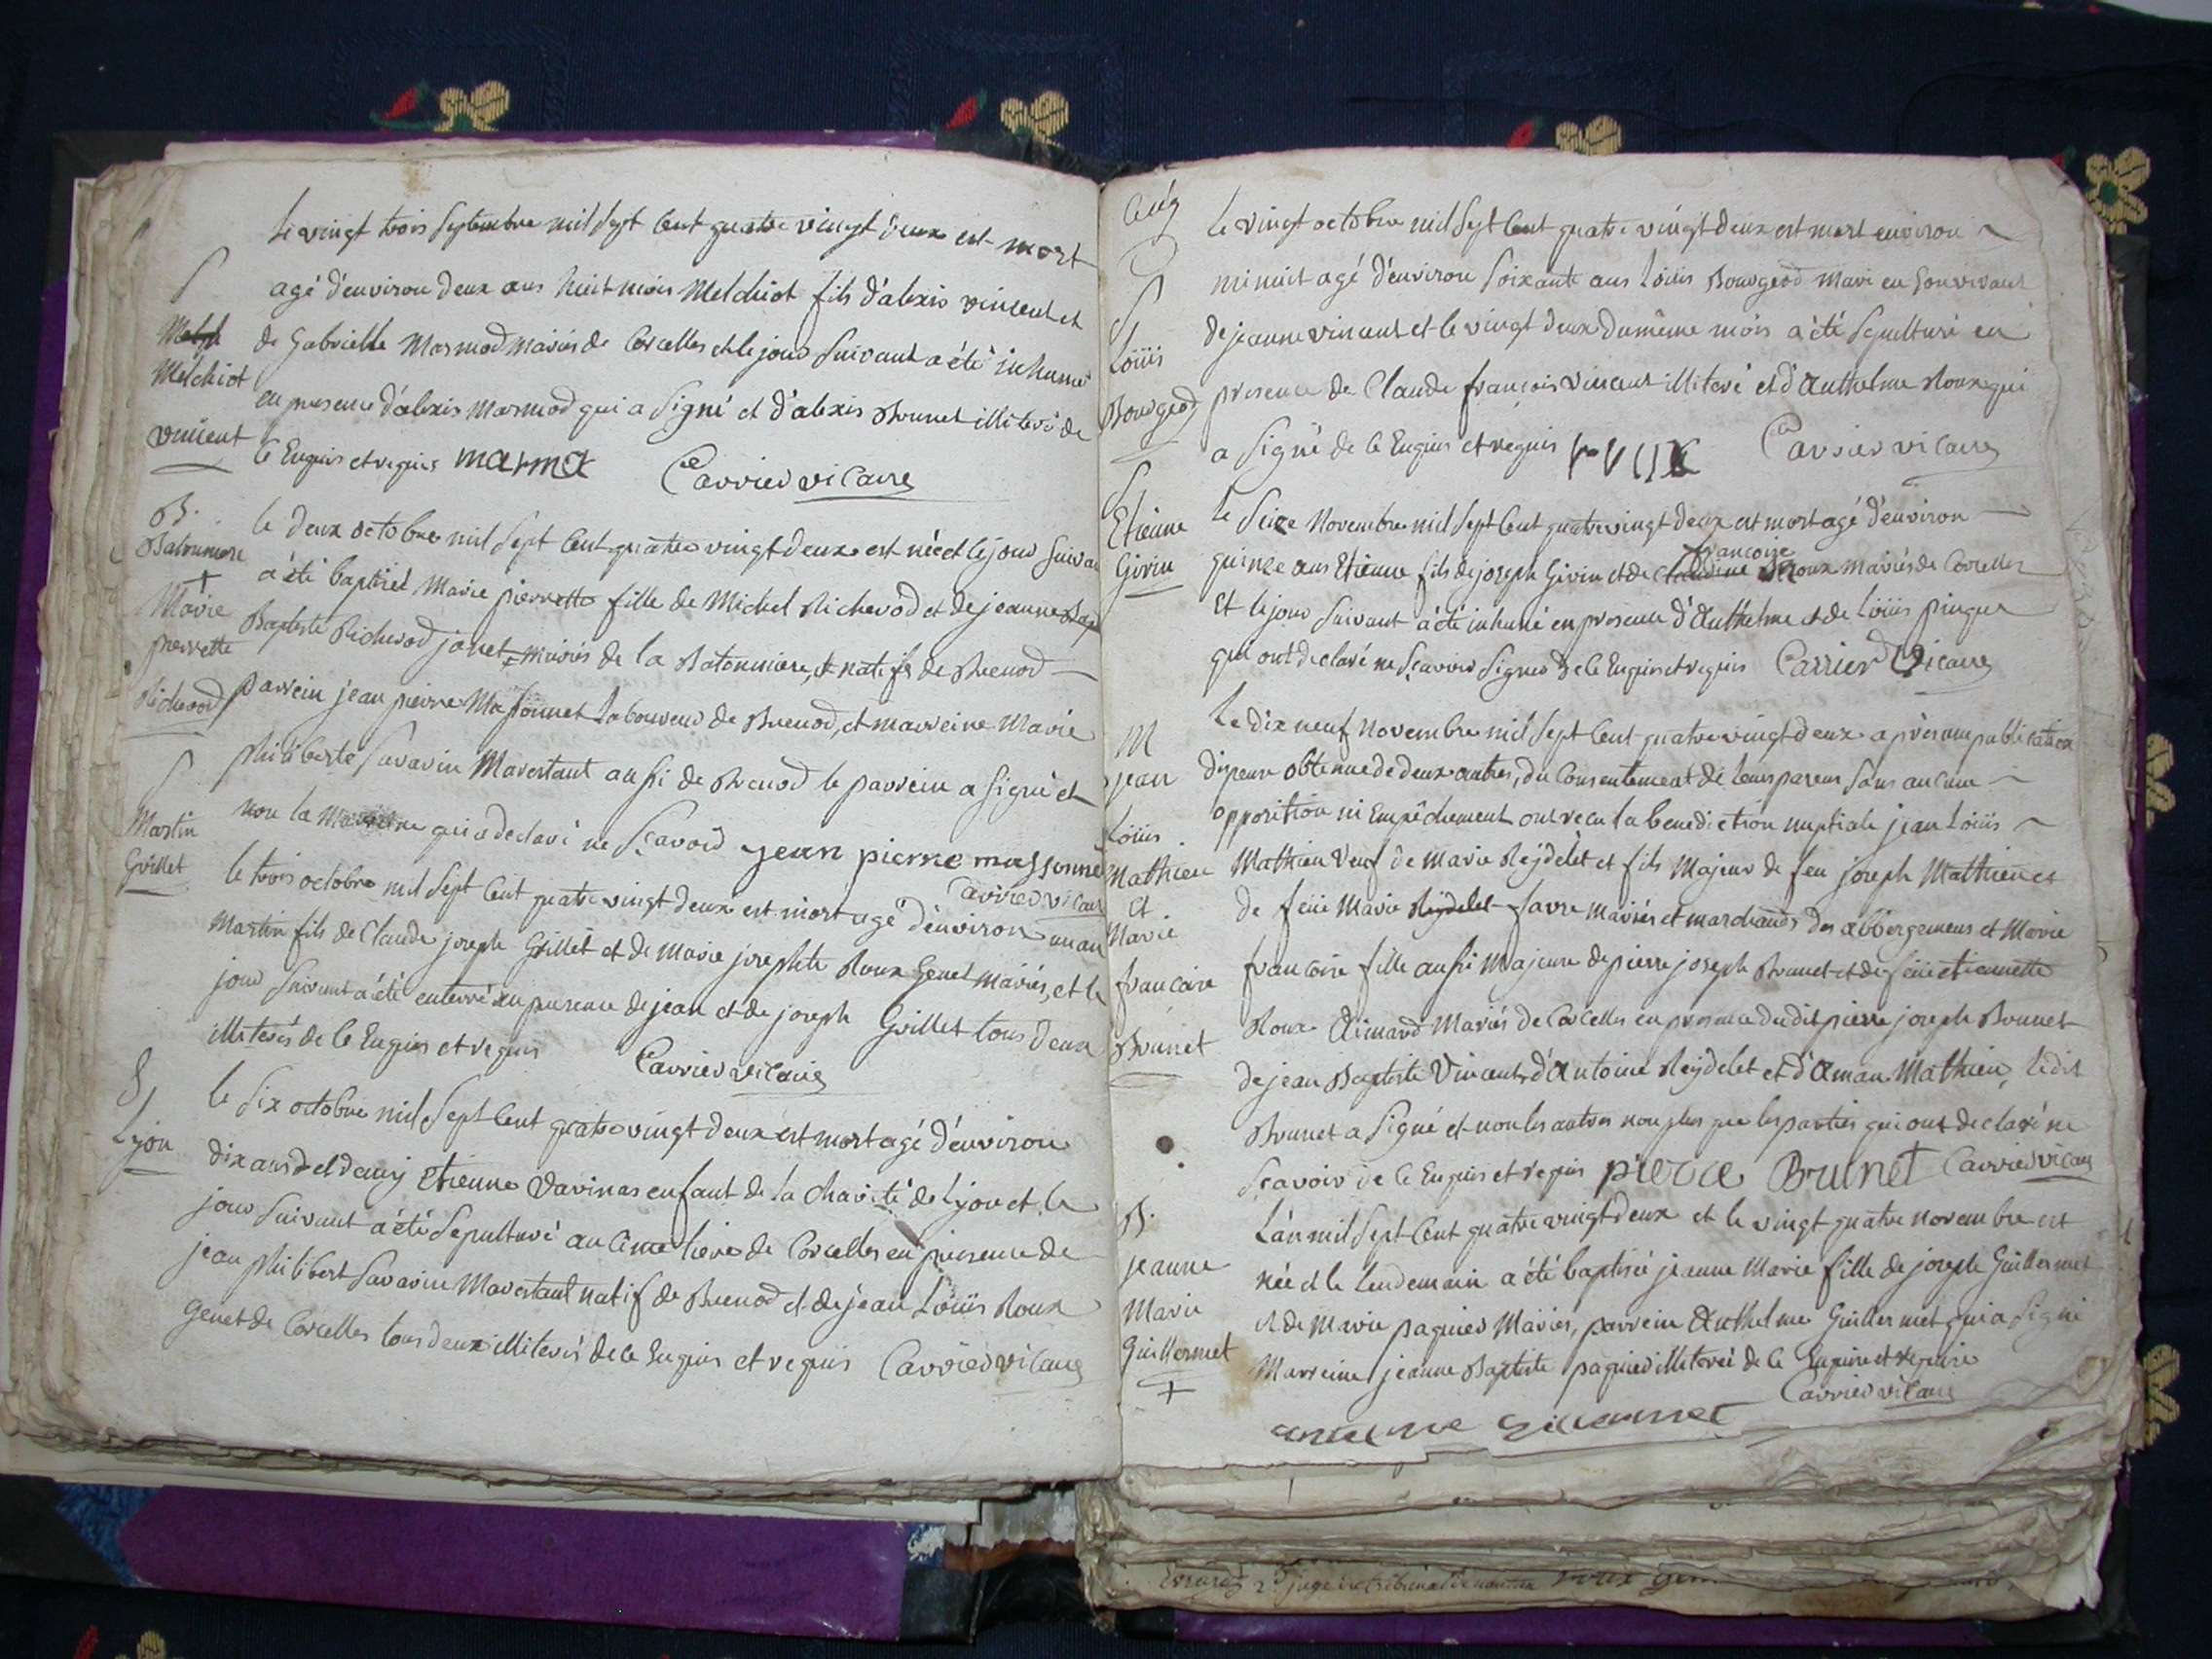 Le vingt trois septembre mil sept cent quatre vingt deux est mort
agé d'environ deux ans huit mois Melchiot fils d'alexis vincent et
de Gabrielle Marmod mariés de Corcelles et le jour suivant a été inhumé
en presence d'alexis Marmod qui a signé et d'alexis Brunet illiteré de
ce Enquis et requis marmod Carrier vicaire
S
Melchiot
vincent
B.
Batonniere
+
Marie
pierrette
Richerod
le deux octobre mil sept cent quatre vingt deux est née et le jour suivant
a été baptisée Marie pierrette fille de Michel Richerod et de jeanne
Baptiste Richerod janet mariés de la Batonniere, et natifs de Brenod
parrein jean pierre Massonnet laboureur de Brenod, et marreine Marie
philiberte Savarin Marestant aussi de Brenod le parrein a signé et
non la Marreine qui a declaré ne sçavoir jean pierre massonné
Carrier vicaire
S
Martin
Grillet
le trois octobre mil sept cent quatre vingt deux est mort agé d'environ un an
Martin fils de Claude joseph Grillet et de Marie josephte Roux Genet mariés, et le
jour suivant a été enterré en presence de jean et de joseph Grillet tous deux
illiterés de ce Enquis et requis Carrier vicaire
S
Lyon
le six octobre mil sept cent quatre vingt deux est mort agé d'environ
dix ans et demy Etienne Davinas enfant de la charité de Lyon et le
jour suivant a été sepulturé au cimetiere de Corcelles en presence de
jean philibert Savarin Marestant natif de Brenod et de jean Loüis Roux
Genet de Corcelles tous deux illiterés de ce Enquis et requis Carrier vicaire
S
Loüis
Bourgeod
Le vingt octobre mil sept cent quatre vingt deux est mort environ
minuit agé d'environ soixante ans Loüis Bourgeod mari en son vivant
de jeanne vincent et le vingt deux du même mois a été sepulturé en
presence de Claude françois vincent illiteré et d'Anthelme Roux qui
a signé de ce Enquis et requis roux Carrier vicaire
S
Etienne
Girin
Le seize Novembre mil sept cent quatre vingt deux est mort agé d'environ
francoise
quinze ans Etienne fils de joseph Girin et de Claudine Roux mariés de Corcelles
Et le jour suivant a été inhumé en presence d'Anthelme et de Loüis pinguet
qui ont declaré ne sçavoir signer de ce Enquis et requis Carrier Vicaire
M
jean
Loüis
Mathieu
et
Marie
francoise
Brunet
Le dix neuf Novembre mil sept cent quatre vingt deux après une publication
dispense obtenue de deux autres, du Consentement de leurs parens sans aucune
opposition ni Empêchement ont recu la benediction nuptiale jean Loüis
Mathieu Veuf de Marie Reydelet et fils Majeur de feu joseph Mathieu et
de feüe Marie Reydelet Favre mariés et marchands des abbergemens et Marie
francoise fille aussi Majeure de pierre joseph Brunet et de feüe etiennette
Roux Aimard Mariés de Corcelles en presence dudit pierre joseph Brunet
de jean Baptiste Vincent, d'Antoine Reydelet et d'Aman Mathieu, ledit
Brunet a signé et non les autres non plus que les parties qui ont declaré ne
sçavoir de ce Enquis et requis pierre Brunet Carrier vicaire
B.
jeanne
Marie
Guillermet
+
L'an mil sept cent quatre vingt deux et le vingt quatre novembre est
née et le lendemain a été baptisée jeanne Marie fille de joseph Guillermet
et de Marie paquier Mariés, parrein Anthelme Guillermet qui a signé
Marreine jeanne Baptiste paquier illiterée de ce Enquise et requise
Carrier vicaire